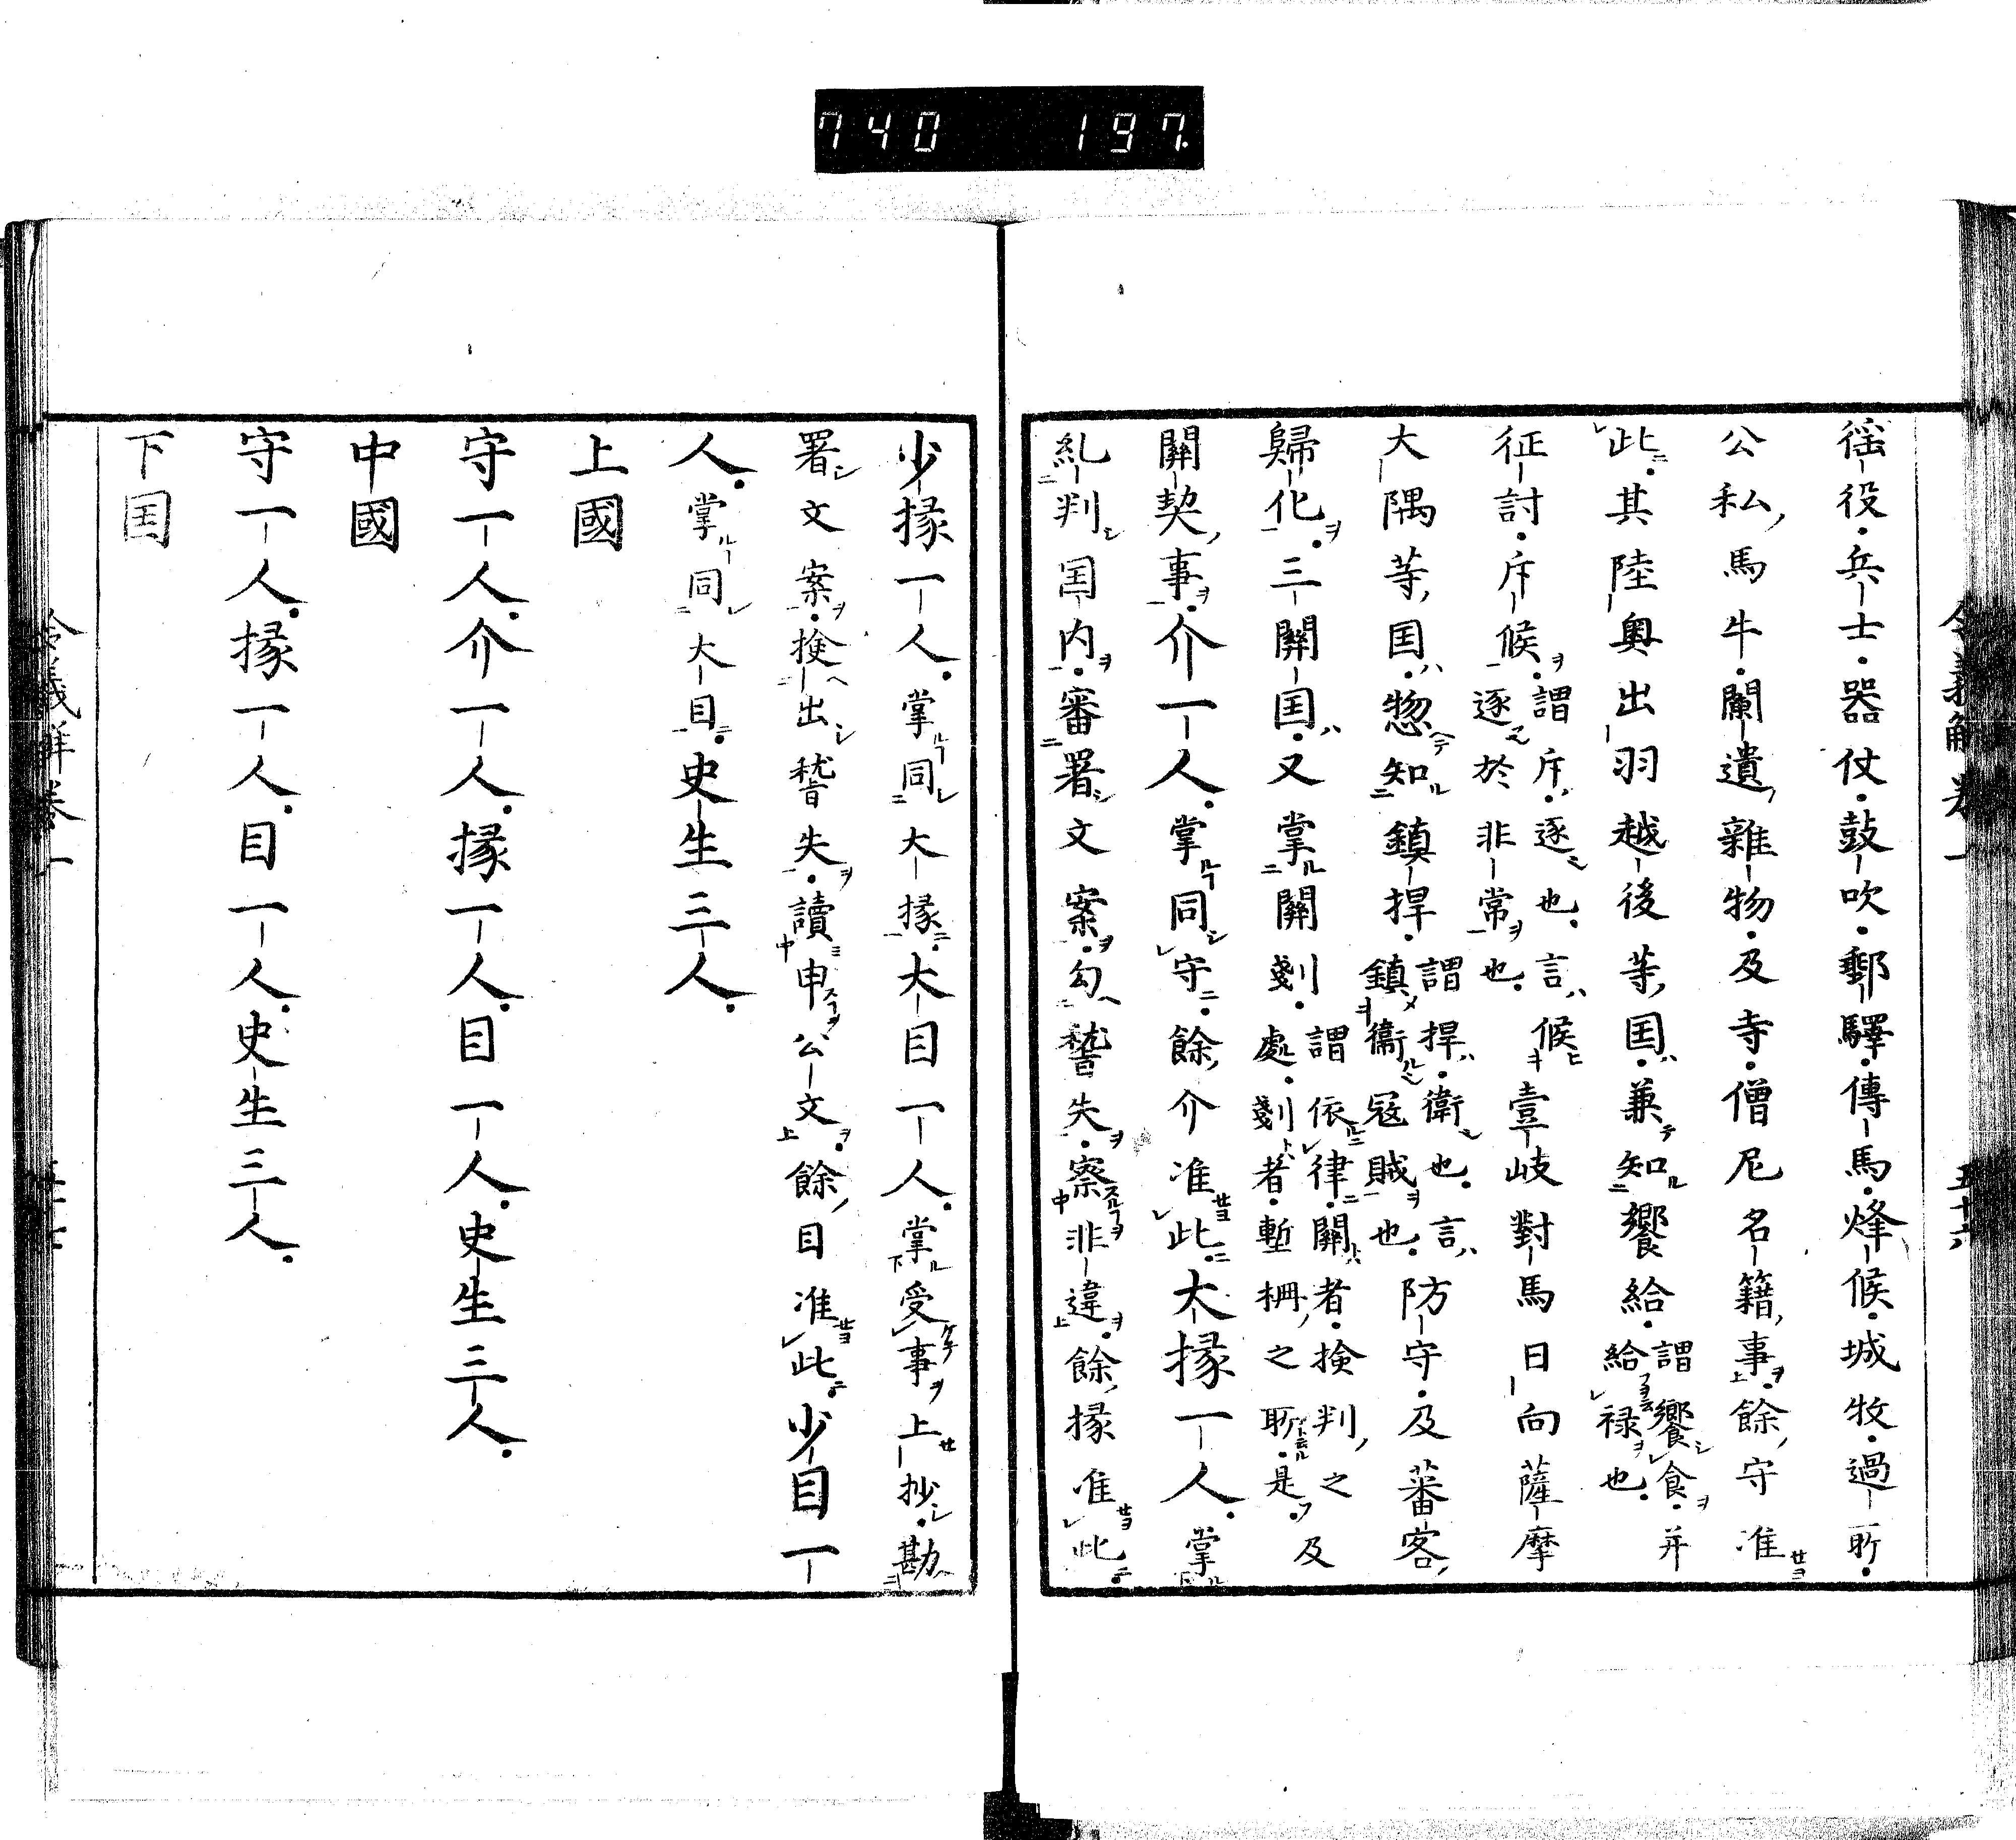 740 197.
徭役兵士器仗鼓吹郵驛傳馬烽候城牧過所
公私馬牛闌遺雜物及寺僧尼名籍事餘守准
此其陸奥出羽越後等国兼知饗給謂饗食并給禄也
征討斥候謂斥逐也言候逐於非常也壹岐對馬日向薩摩
大隅等国惣知鎮捍謂捍衛也言鎮衞寇賊也防守及蕃客
歸化三關国又掌關剗謂依律關者撿判之處剗者塹柵之所是及
關契事介一人掌同守餘介准此大掾一人掌
糺判国内審署文案勾稽失察非違餘掾准此
少掾一人掌同大掾大目一人掌受事上抄勘
署文案撿出稽失讀申公文餘目准此少目一
人掌同大目史生三人
上國
守一人介一人掾一人目一人史生三人
中國
守一人掾一人目一人史生三人
下国